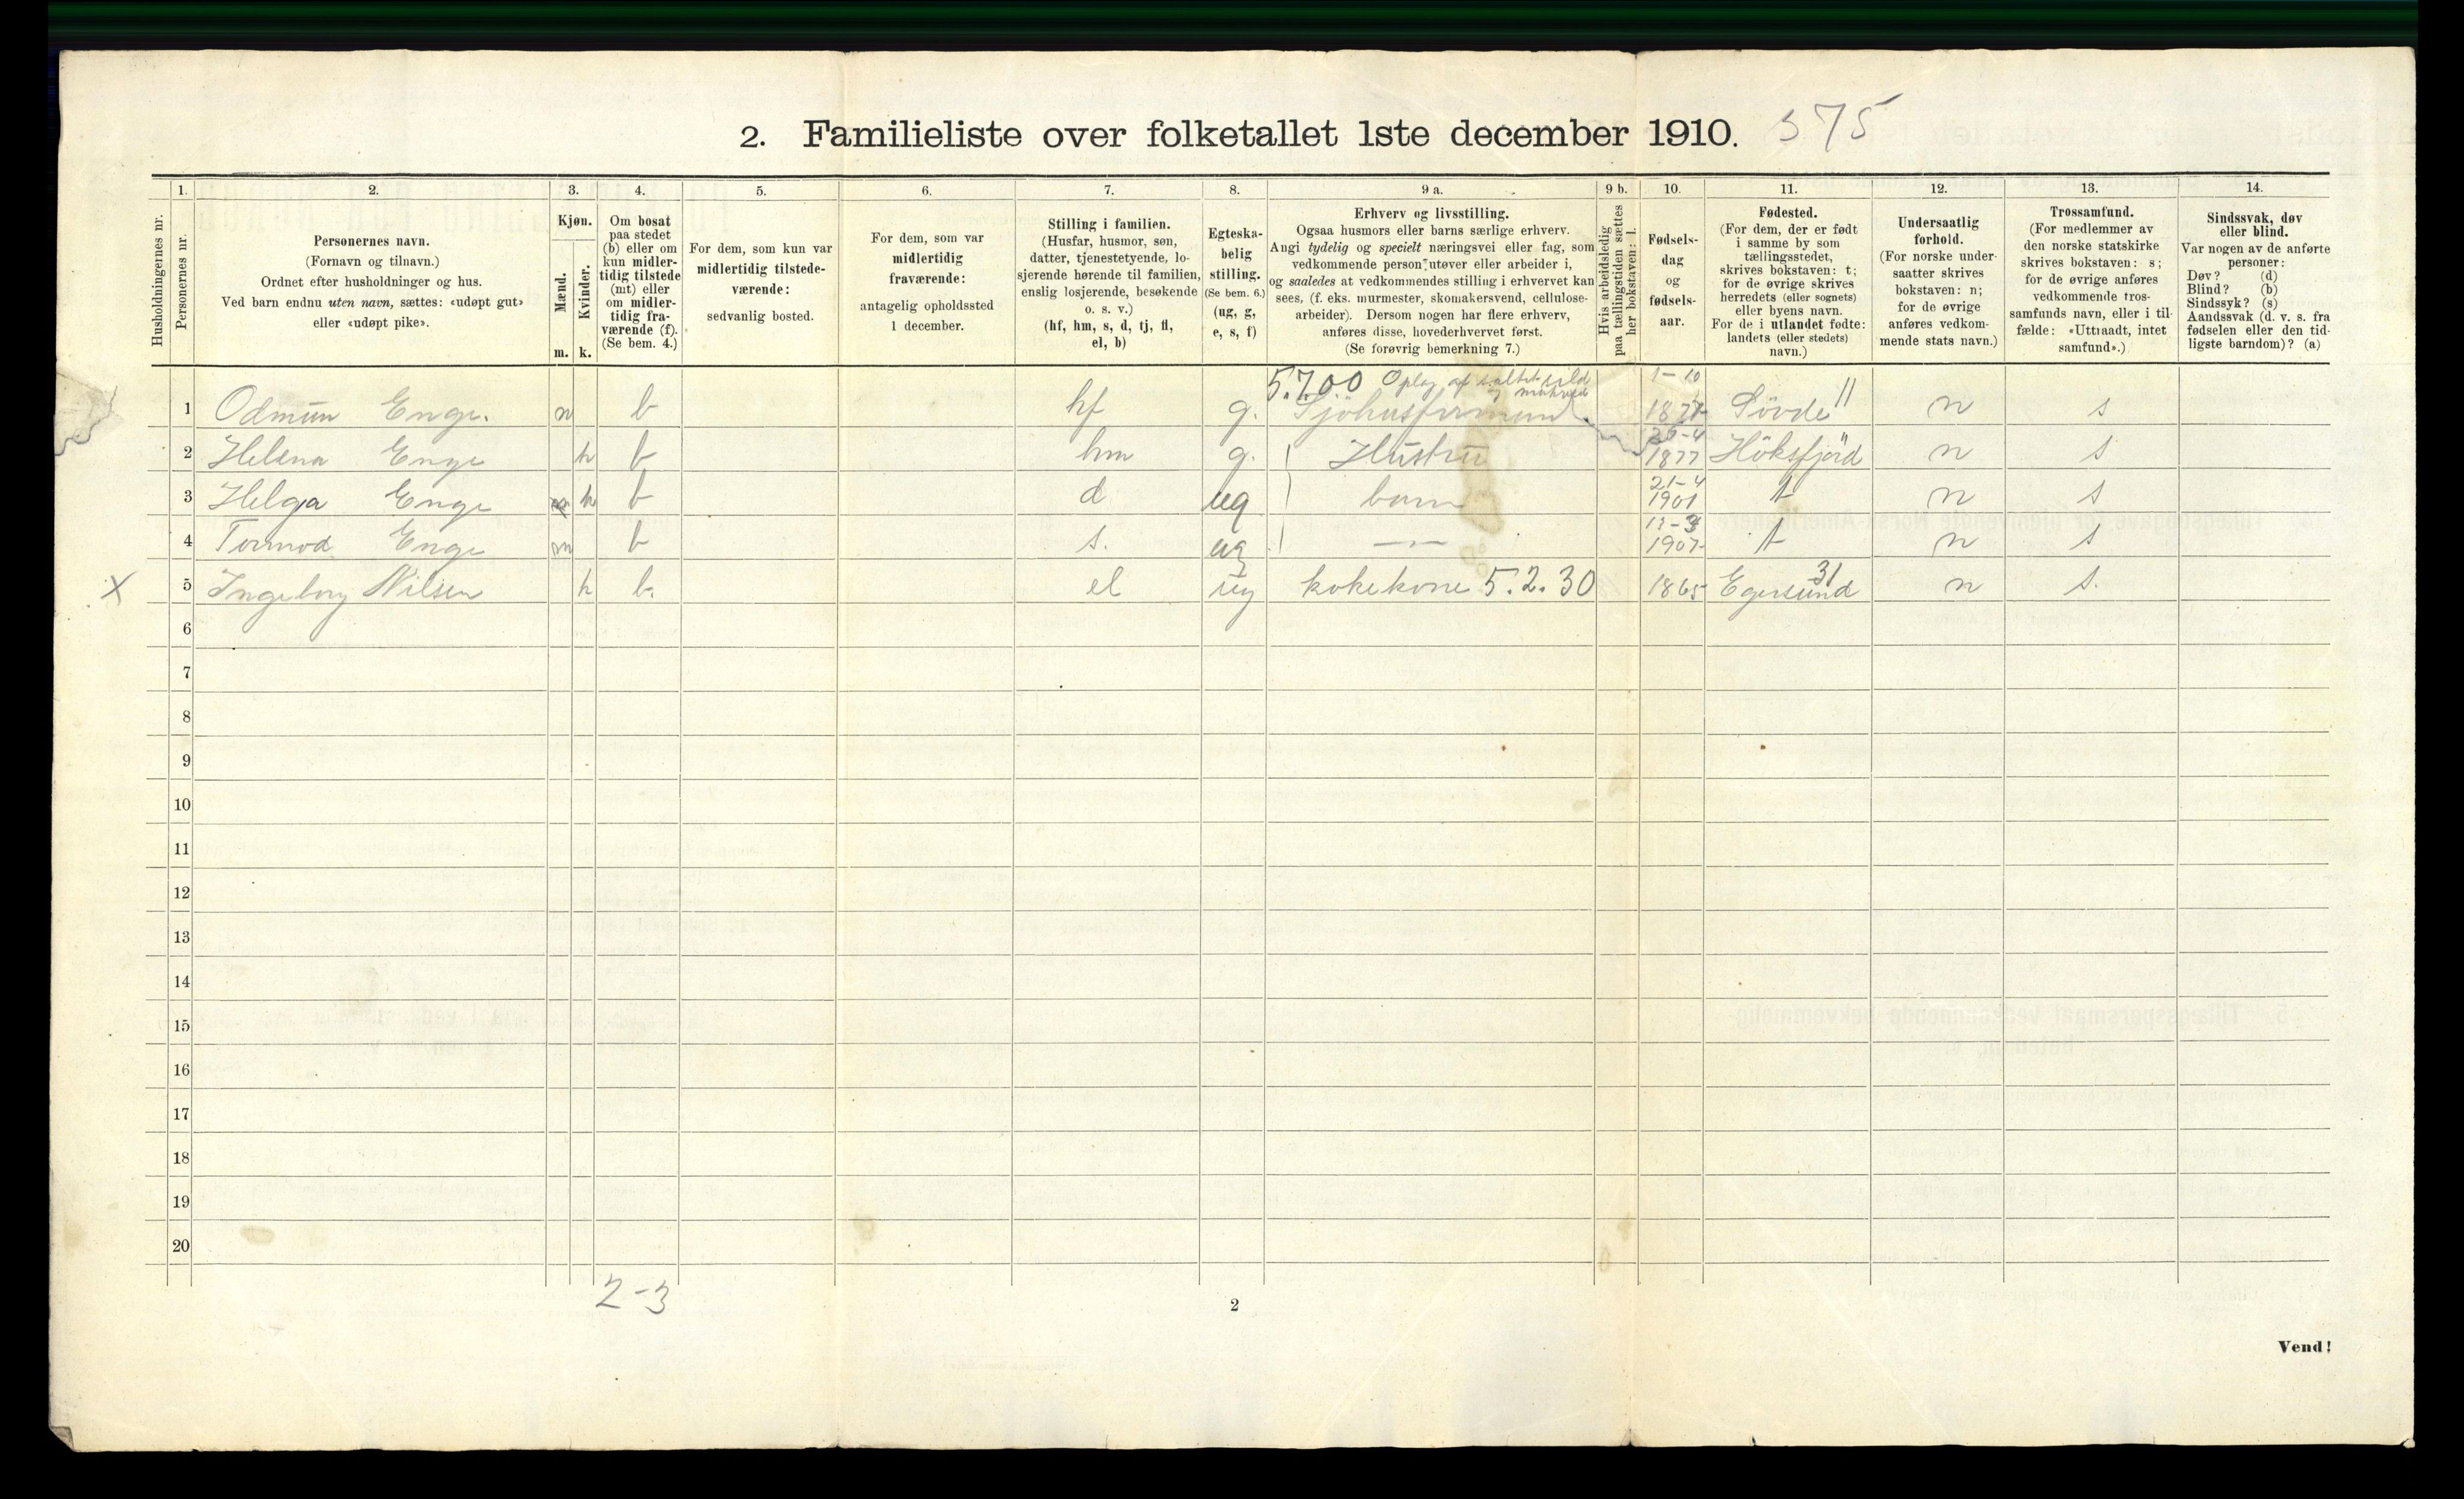 2. Familieliste over folketallet 1ste december 1910. 375
Husholdningernes nr.
1. Personernes nr.
2. Personernes navn.
(Fornavn og tilnavn.)
Ordnet efter husholdninger og hus.
Ved barn endnu uten navn, sættes: «udøpt gut»
eller «udøpt pike».
3. Kjøn.
Mænd. Kvinder.
m. k.
4. Om bosat
paa stedet
(b) eller om
kun midler-
tidig tilstede
(mt) eller
om midler-
tidig fra-
værende (f).
(Se bem. 4.)
5. For dem, som kun var
midlertidig tilstede-
værende:
sedvanlig bosted.
6. For dem, som var
midlertidig
fraværende:
antagelig opholdssted
1 december.
7. Stilling i familien.
(Husfar, husmor, søn,
datter, tjenestetyende, lo-
sjerende hørende til familien,
enslig losjerende, besøkende
o. s. v.)
(hf, hm, s, d, tj, fl,
el, b)
8. Egteska-
belig
stilling.
(Se bem. 6.)
(ug, g,
e, s, f)
9 a. Erhverv og livsstilling.
Ogsaa husmors eller barns særlige erhverv.
Angi tydelig og specielt næringsvei eller fag, som
vedkommende person utøver eller arbeider i,
og saaledes at vedkommendes stilling i erhvervet kan
sees, (f. eks. murmester, skomakersvend, cellulose-
arbeider). Dersom nogen har flere erhverv,
anføres disse, hovederhvervet først.
(Se forøvrig bemerkning 7.)
9 b. Hvis arbeidsledig
paa tællingstiden sættes
her bokstaven: l.
10. Fødsels-
dag
og
fødsels-
aar.
11. Fødested.
(For dem, der er født
i samme by som
tællingsstedet,
skrives bokstaven: t;
for de øvrige skrives
herredets (eller sognets)
eller byens navn.
For de i utlandet fødte:
landets (eller stedets)
navn.)
12. Undersaatlig
forhold.
(For norske under-
saatter skrives
bokstaven: n;
for de øvrige
anføres vedkom-
mende stats navn.)
13. Trossamfund.
(For medlemmer av
den norske statskirke
skrives bokstaven: s;
for de øvrige anføres
vedkommende tros-
samfunds navn, eller i til-
fælde: «Uttraadt, intet
samfund».)
14. Sindssvak, døv
eller blind.
Var nogen av de anførte
personer:
Døv? (d)
Blind? (b)
Sindssyk? (s)
Aandssvak (d. v. s. fra
fødselen eller den tid-
ligste barndom)? (a)
5.7.00 Oplag af saltet sild 1-10
1 Odmun Enge. m b hf g. Sjöhusformand Sövde 11 n s
2 Helena Enge k b hm g. Hustru 1877 Höksfjörd n s
21-4
3 Helga Enge k b d ug barn 1901 t n s
4 Tormod Enge m b s. ug — 1907 t n s
X 5 Ingeborg Nilsen k b. el ug kokekone 5.2.30 1865 Egersund 31 n s.
6
7
8
9
10
11
12
13
14
15
16
17
18
19
20
2-3
2
Vend!